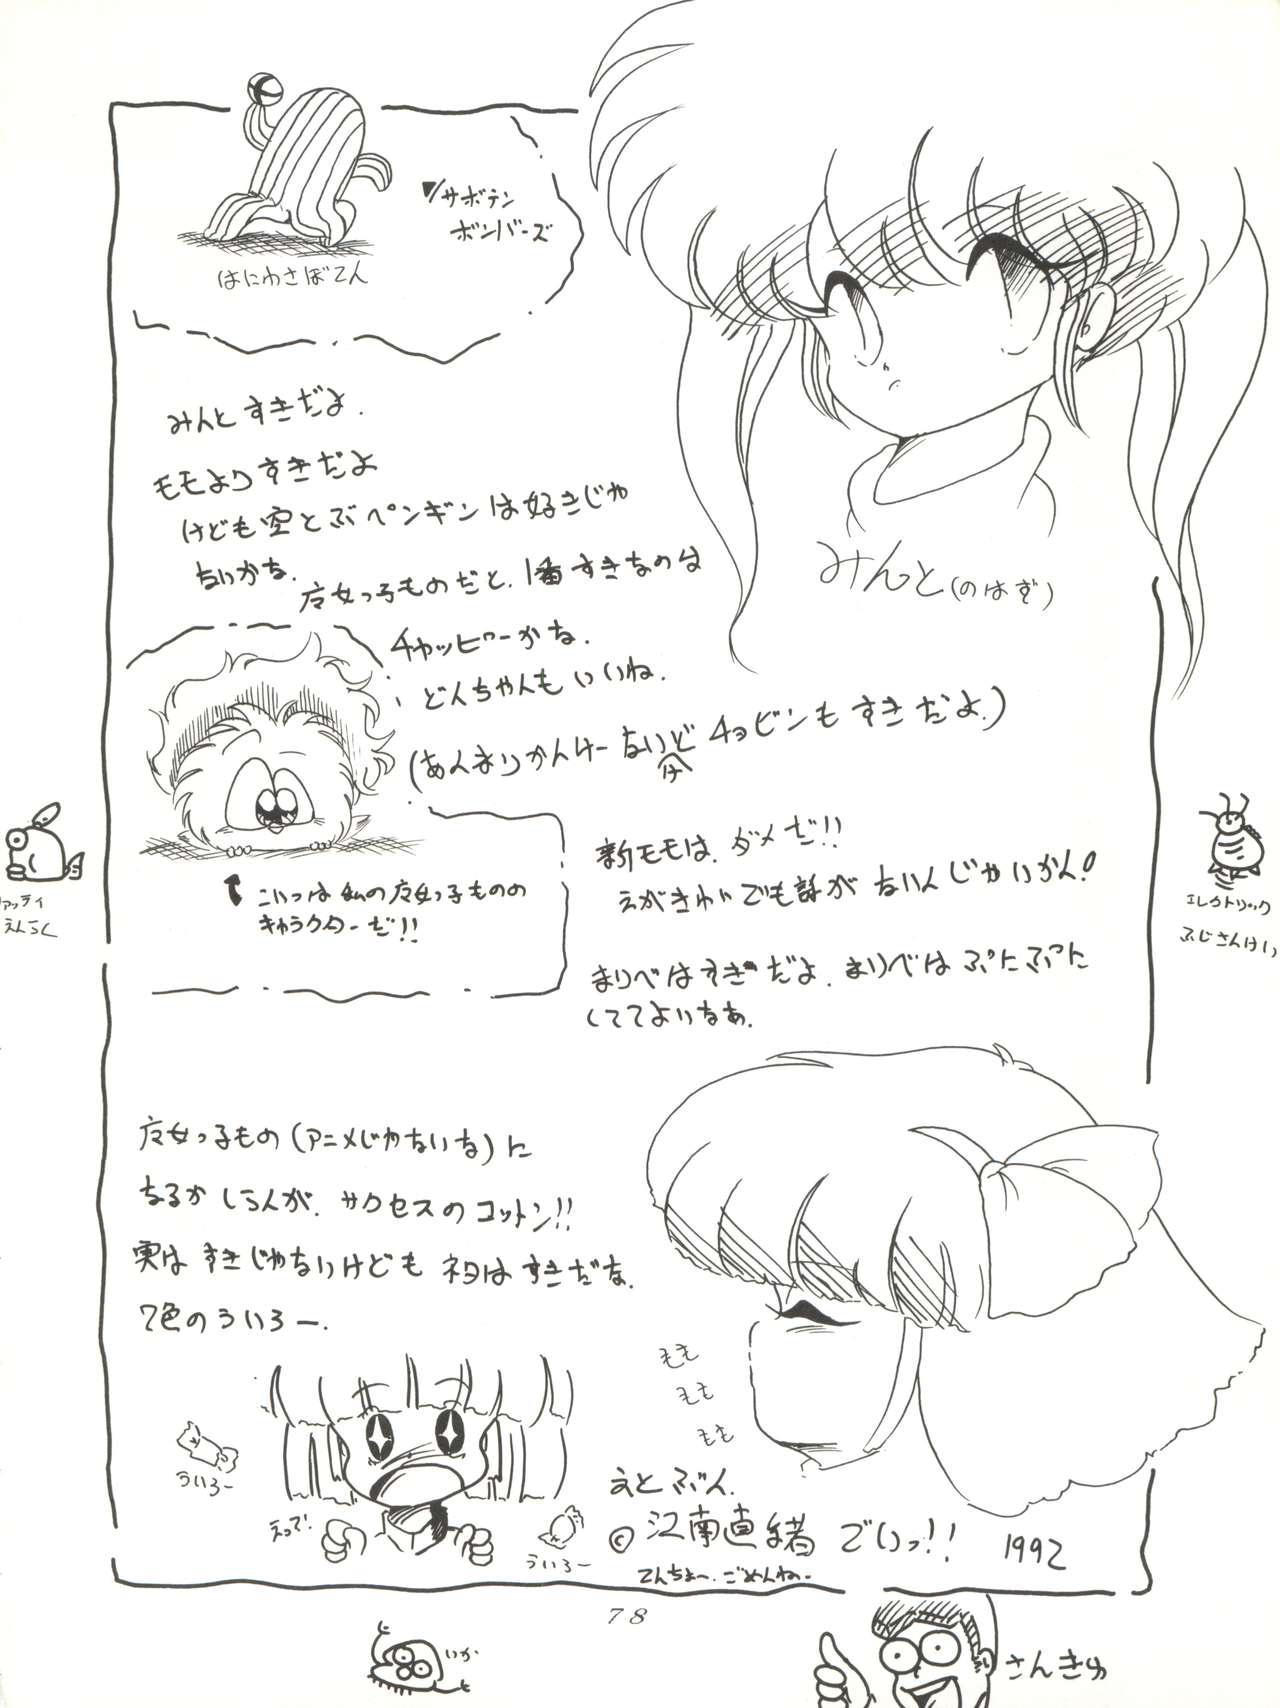 サボテン
ボンバーズ
はにわさぼてん
みんとすきだよ.
モモよりすきだよ
けども空とぶペンギンは好きじゃ
ないかな.
魔女っ子ものだと、1番すきなのは
チャッピーかな.
どんちゃんもいいね.
(あんまりかんけーないけど チョビンもすきだよ.)
みんと(のはず)
新モモは、ダメだ!!
えがきれいでも話がないんじゃいかん!
まりべはすきだよ、まりべは ぷたぷた
しててよいなあ.
こいつは私の魔女っ子ものの
キャラクターだ!!
えんらく
エレクトリック
ふじさんはい
魔女っ子もの(アニメじゃないな)に
なるかしらんが、サクセスのコットン!!
実はすきじゃないけどもネタはすきだな.
7色のういろー.
ういろー
えって!
ういろー
もも
もも
もも
えとぶん.
©江南直緒 でいっ!! 1992
てんちょー、ごめんねー
78
いか
さんきゅ